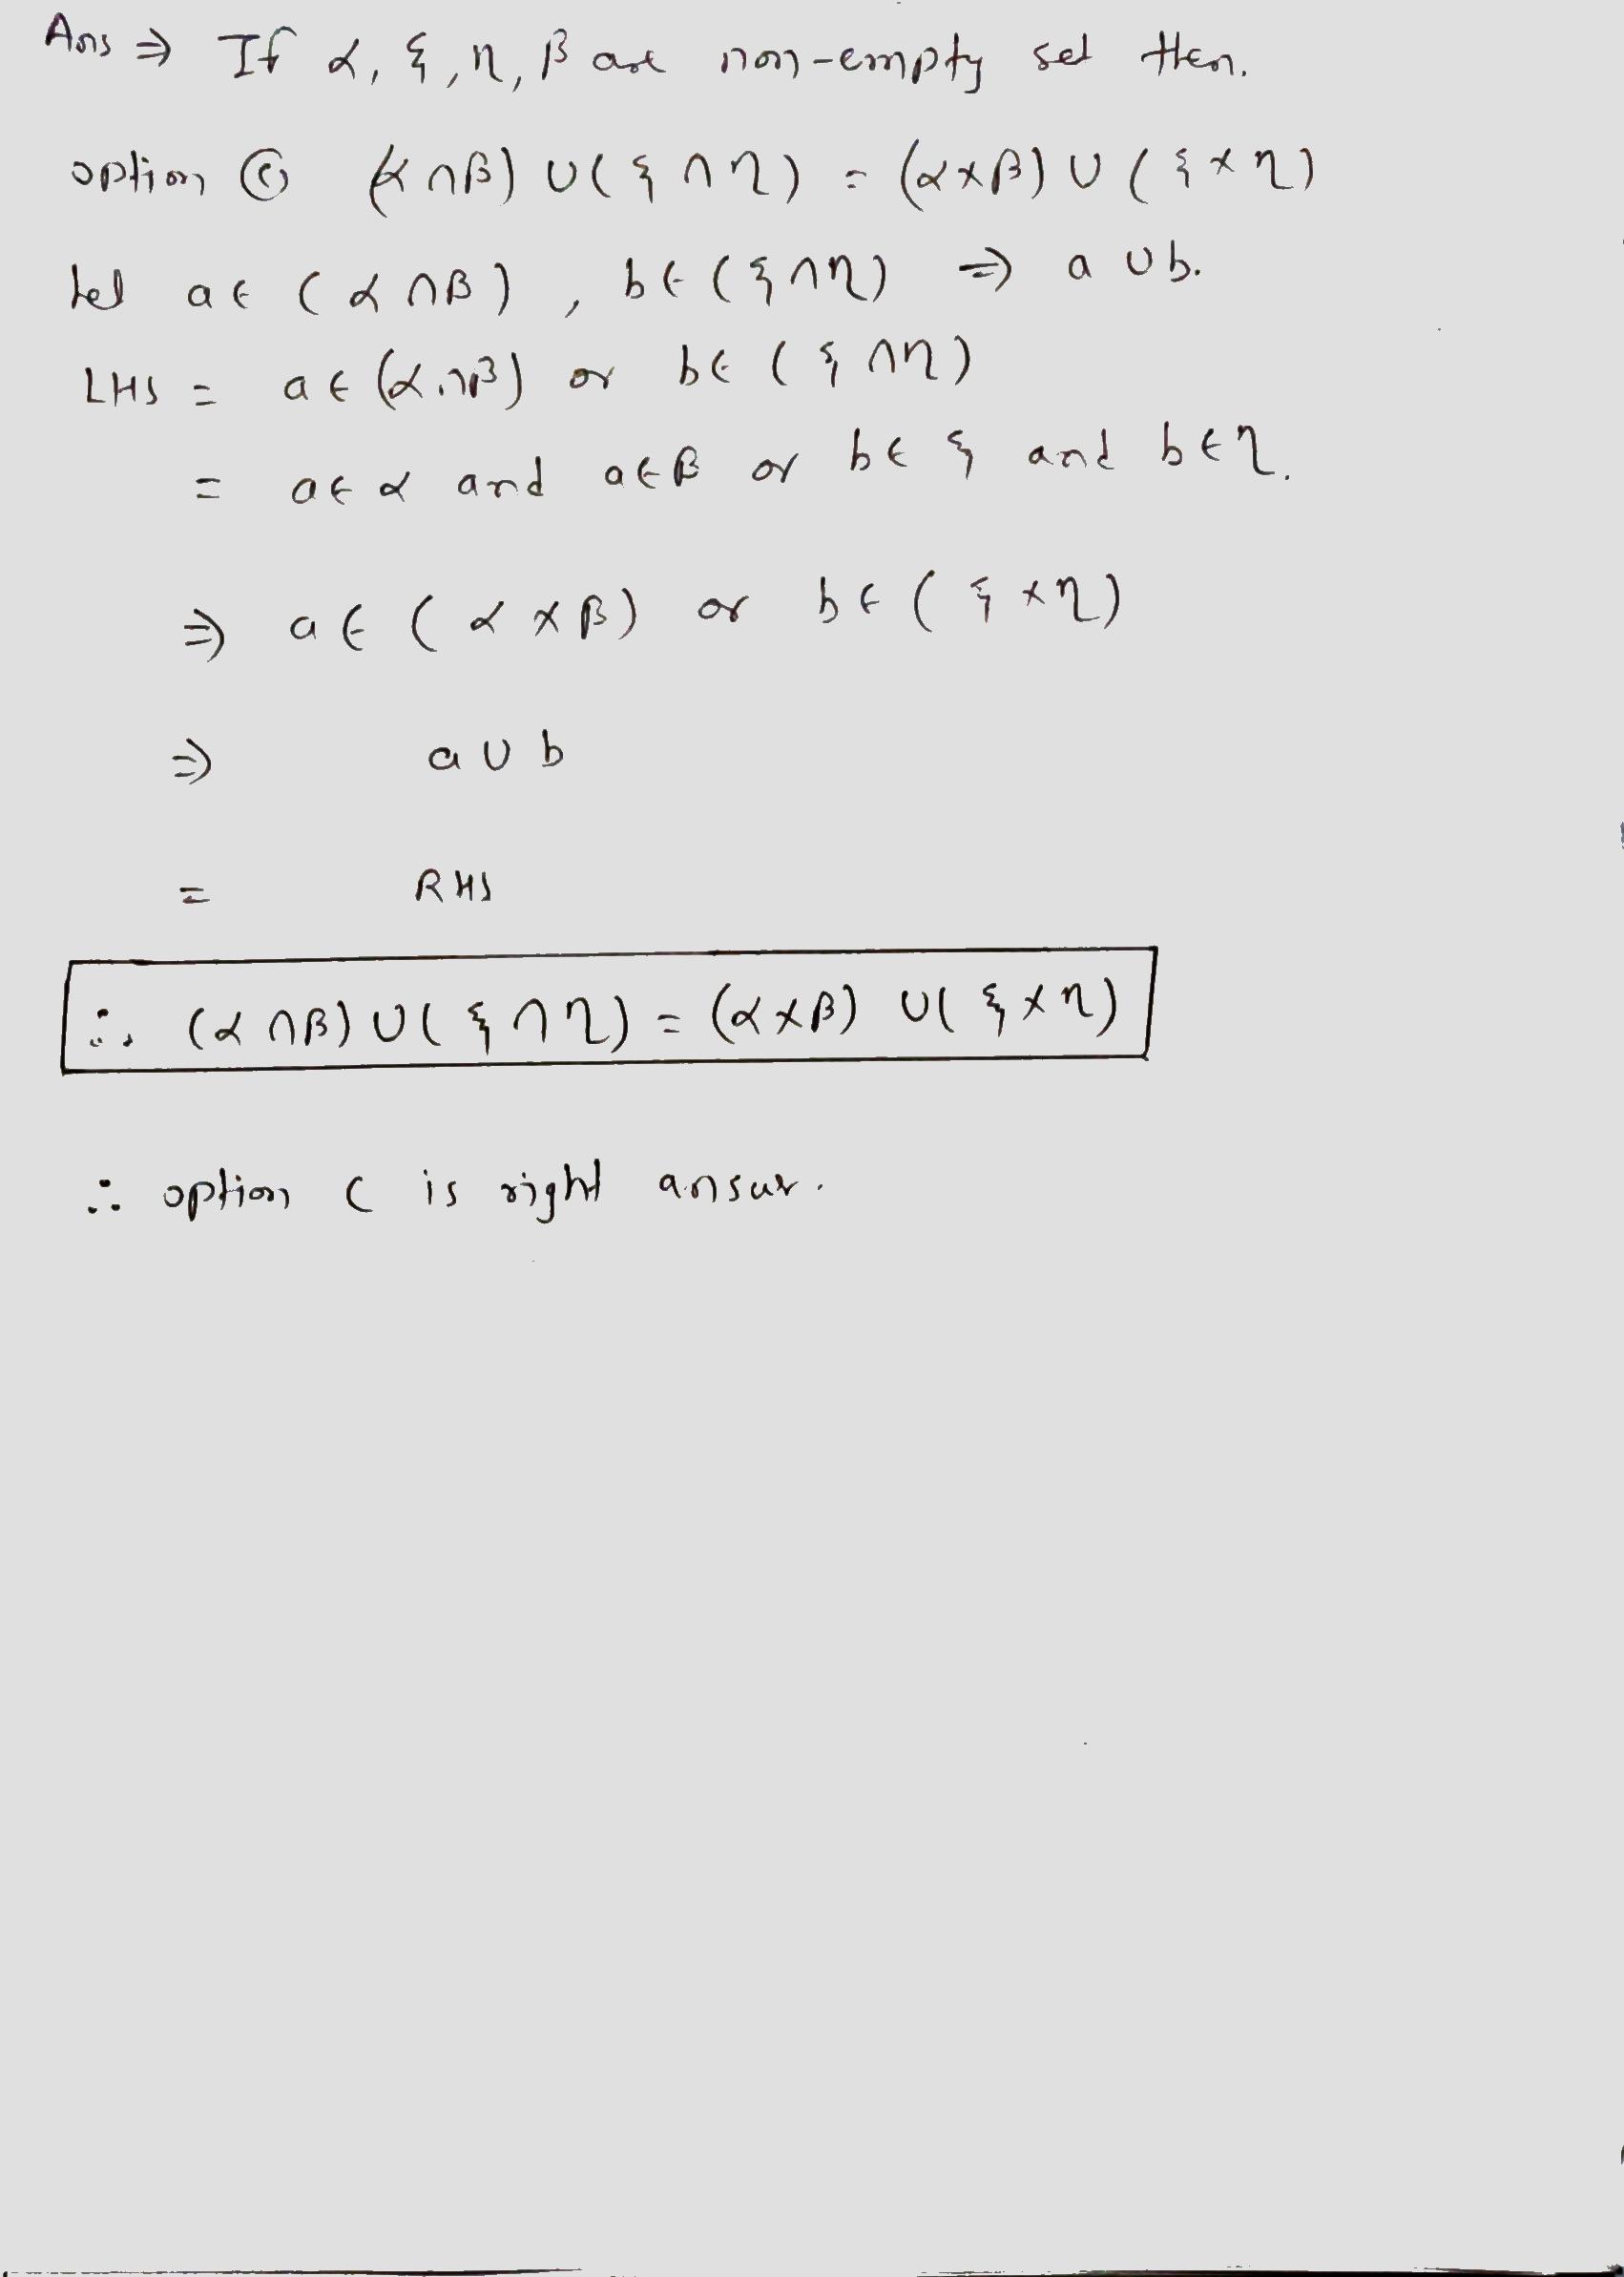 Ans ⇒ If α, ξ, η, β are non-empty set then.
option ⓒ (α ∩ β) ∪ (ξ ∩ η) = (α × β) ∪ (ξ × η)
Let a ∈ (α ∩ β), b ∈ (ξ ∩ η) ⇒ a ∪ b.
LHS = a ∈ (α ∩ β) or b ∈ (ξ ∩ η)
= a ∈ α and a ∈ β or b ∈ ξ and b ∈ η.
⇒ a ∈ (α × β) or b ∈ (ξ × η)
⇒ a ∪ b
= RHS
∴ (α ∩ β) ∪ (ξ ∩ η) = (α × β) ∪ (ξ × η)
∴ option C is right answer.